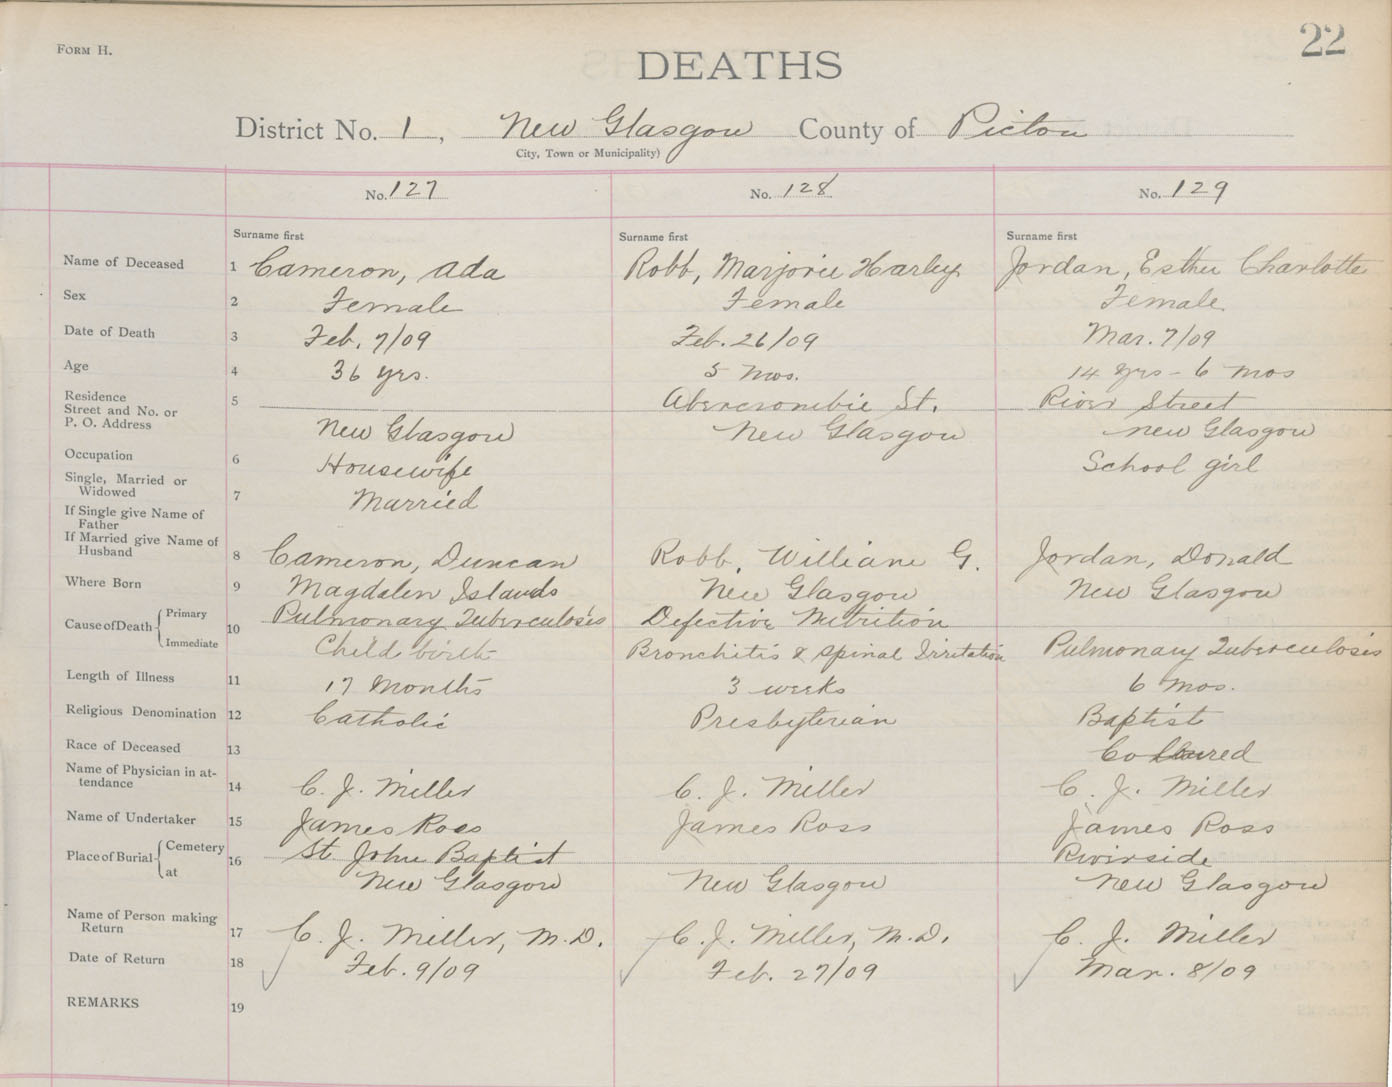 FORM H.
22
DEATHS
District No. 1, New Glasgow County of Pictou
City, Town or Municipality)
No. 127 No. 128 No. 129
Surname first Surname first Surname first
Name of Deceased 1 Cameron, Ada Robb, Marjorie Harley Jordan, Esther Charlotte
Sex 2 Female Female Female
Date of Death 3 Feb. 7/09 Feb. 26/09 Mar. 7/09
Age 4 36 yrs. 5 mos. 14 yrs - 6 mos
Residence 5 Abercrombie St. River Street
Street and No. or
P. O. Address New Glasgow New Glasgow New Glasgow
Occupation 6 Housewife School girl
Single, Married or
Widowed 7 Married
If Single give Name of
Father
If Married give Name of
Husband 8 Cameron, Duncan Robb, William G. Jordan, Donald
Where Born 9 Magdalen Islands New Glasgow New Glasgow
Cause of Death Primary 10 Pulmonary Tuberculosis Defective Nutrition
Immediate Child birth Bronchitis & Spinal Irritation Pulmonary Tuberculosis
Length of Illness 11 17 Months 3 weeks 6 mos.
Religious Denomination 12 Catholic Presbyterian Baptist
Race of Deceased 13 Coloured
Name of Physician in at-
tendance 14 C. J. Miller C. J. Miller C. J. Miller
Name of Undertaker 15 James Ross James Ross James Ross
Place of Burial Cemetery 16 St John Baptist Riverside
at New Glasgow New Glasgow New Glasgow
Name of Person making
Return 17 C. J. Miller, M.D. C. J. Miller, M.D. C. J. Miller
Date of Return 18 Feb. 9/09 Feb. 27/09 Mar. 8/09
REMARKS 19